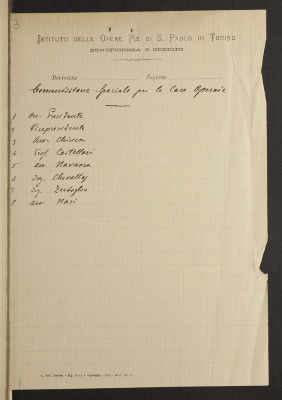 3
ISTITUTO DELLE OPERE PIE DI S. PAOLO IN TORINO
BENEFICENZA E CREDITO
Divisione Sezione
Commissione speciale per le Case Operaie
1 On. Presidente
2 Vicepresidente
3 Avv. Chiesa
4 Prof. Castellari
5 avv. Navarra
6 Ing. Chevalley
7 Ing. Zerboglio
8 avv. Nasi